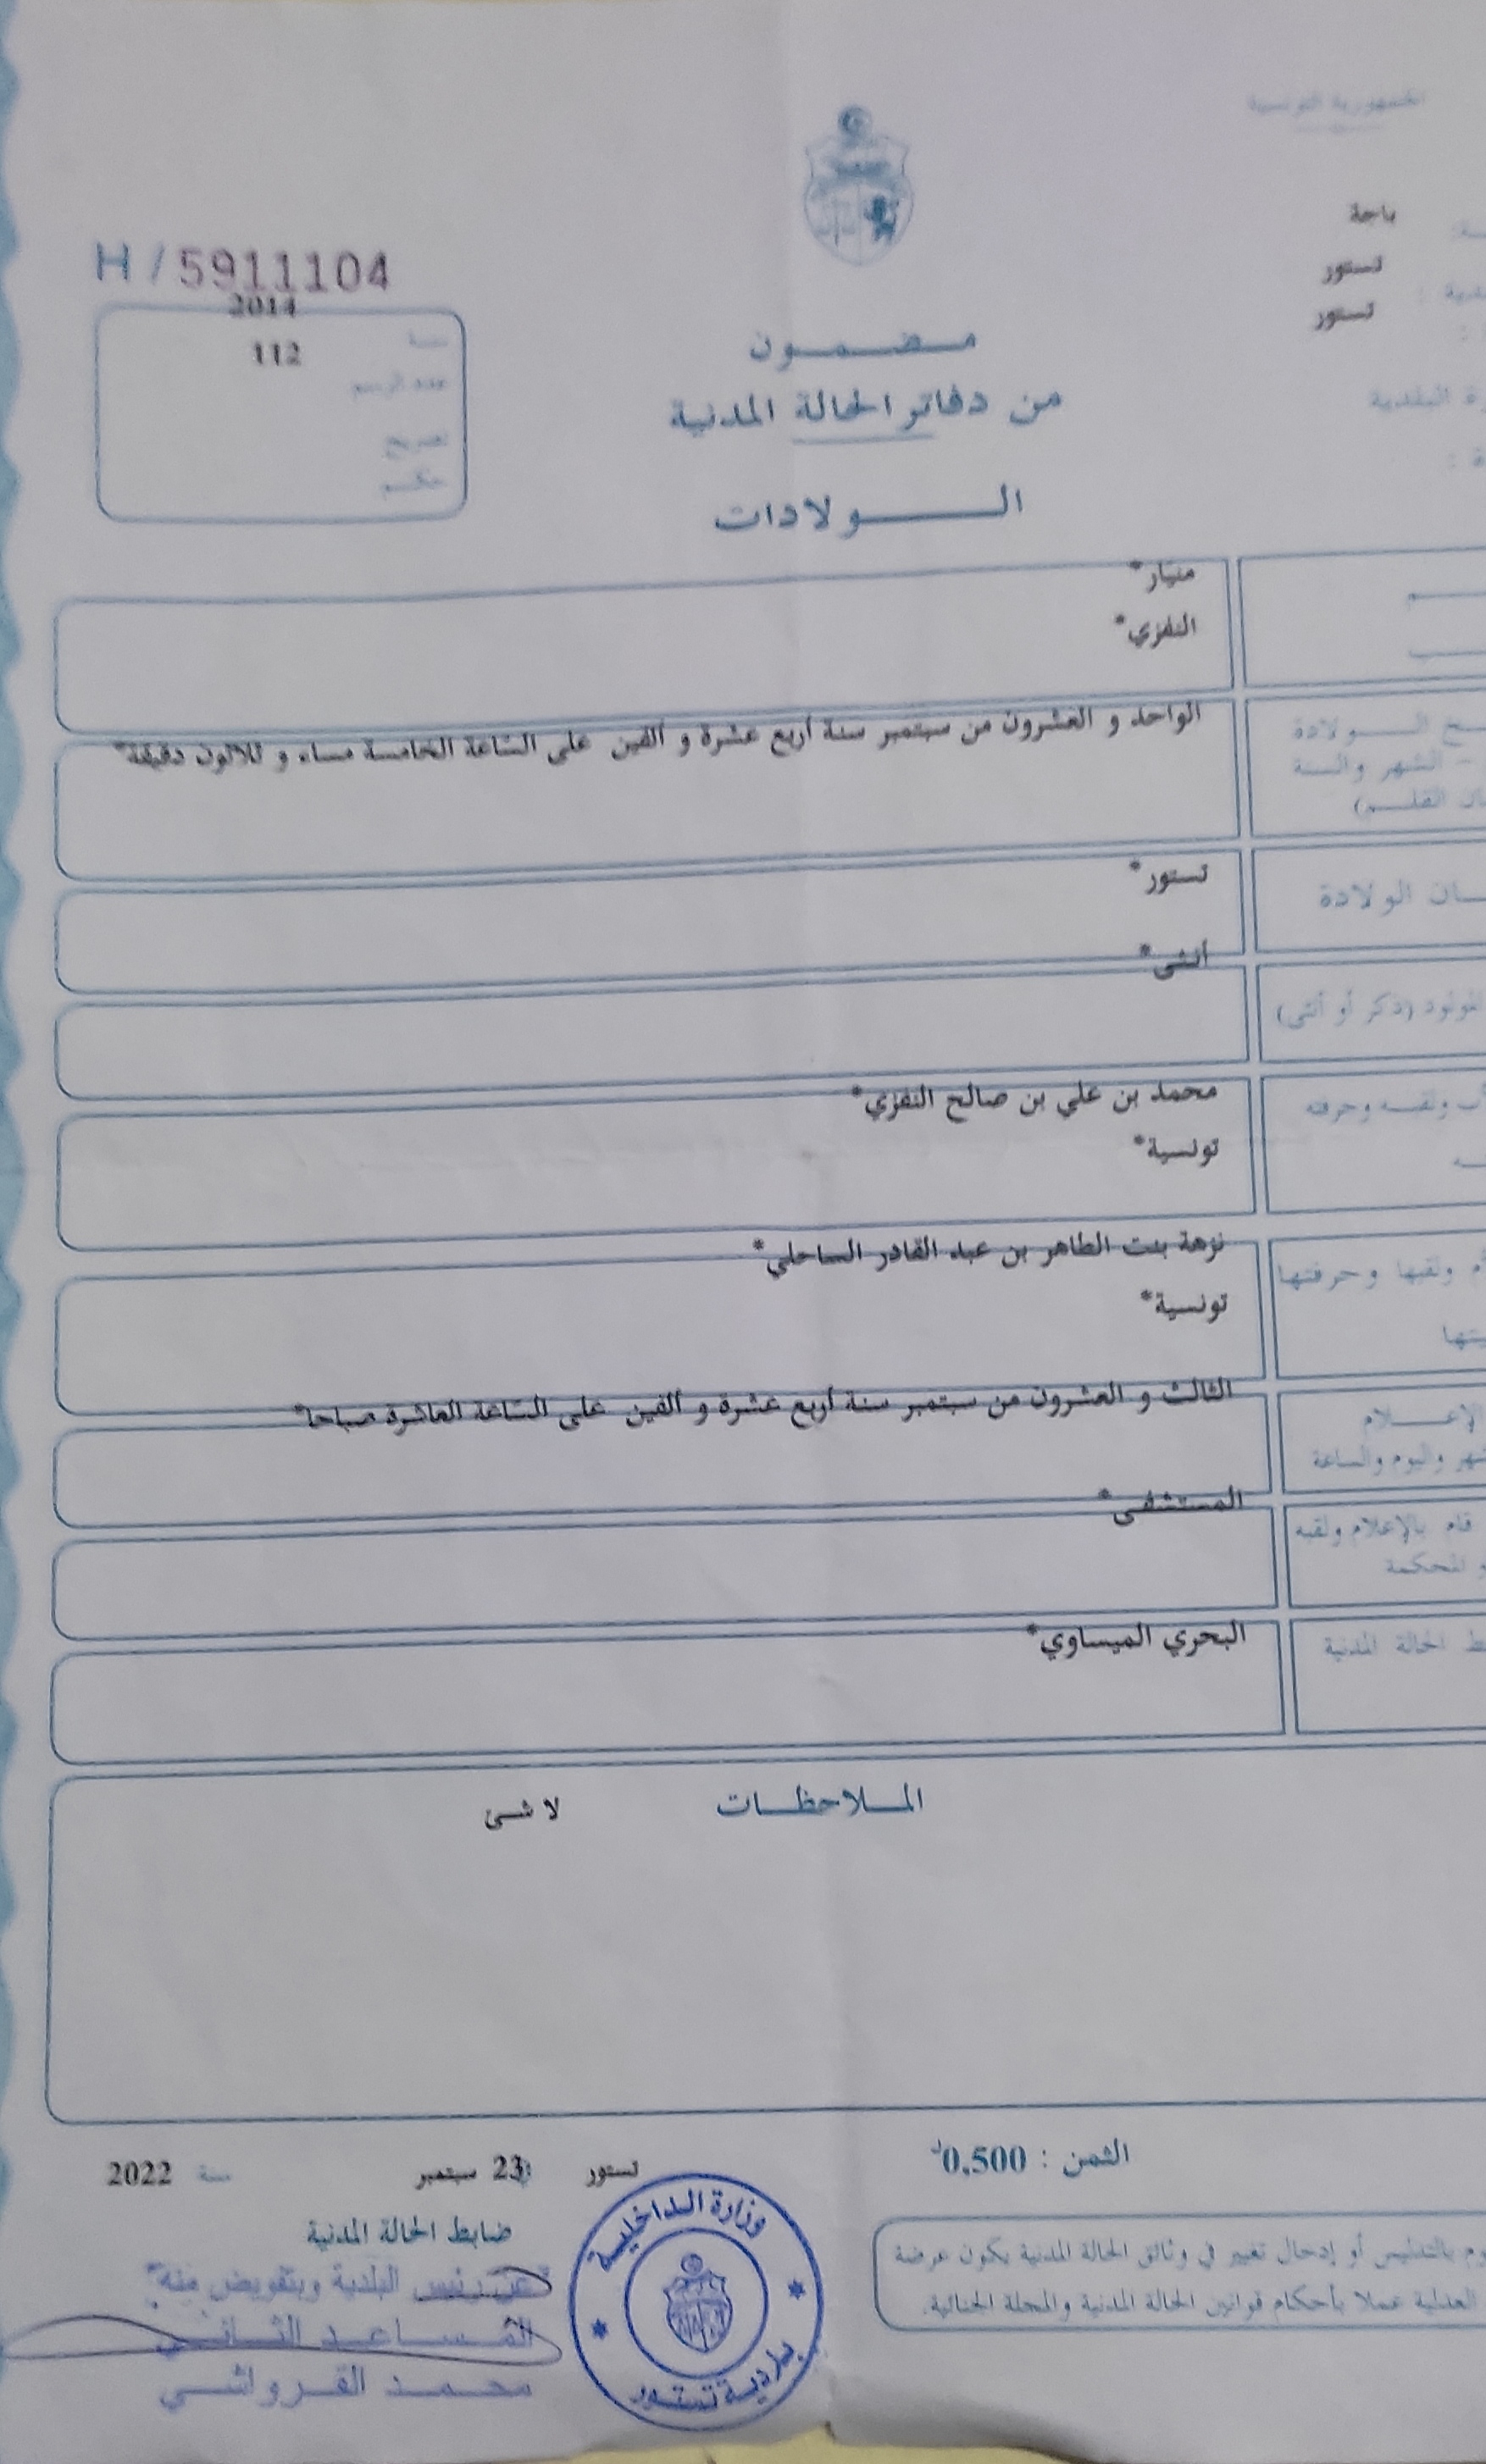 الجمهورية التونسية
باجة
تستور
تستور
H / 5911104
2014
سنة
112
عدد الرسم
تصريح
حكم
مضمون
من دفاتر الحالة المدنية
الولادات
منيار*
النفزي*
الواحد و العشرون من سبتمبر سنة أربع عشرة و ألفين على الساعة الخامسة مساء و ثلاثون دقيقة*
الولادة
- الشهر والسنة
القلم)
تستور*
الولادة
أنثى*
المولود (ذكر أو أنثى)
محمد بن علي بن صالح النفزي*
ولقبه وحرفته
تونسية*
نزهة بنت الطاهر بن عبد القادر الساحلي*
ولقبها وحرفتها
تونسية*
الثالث و العشرون من سبتمبر سنة أربع عشرة و ألفين على الساعة العاشرة صباحا*
الإعلام
واليوم والساعة
المستشفى*
قام بالإعلام ولقبه
المحكمة
البحري الميساوي*
الحالة المدنية
الملاحظات
لا شئ
الثمن : 0,500د
تستور 23 سبتمبر سنة 2022
ضابط الحالة المدنية
عن رئيس البلدية وبتفويض منه
المساعد الثاني
محمد القرواشي
وزارة الداخلية
بلدية تستور
بالتدليس أو إدخال تغيير في وثائق الحالة المدنية يكون عرضة
العدلية عملا بأحكام قوانين الحالة المدنية والمجلة الجنائية.